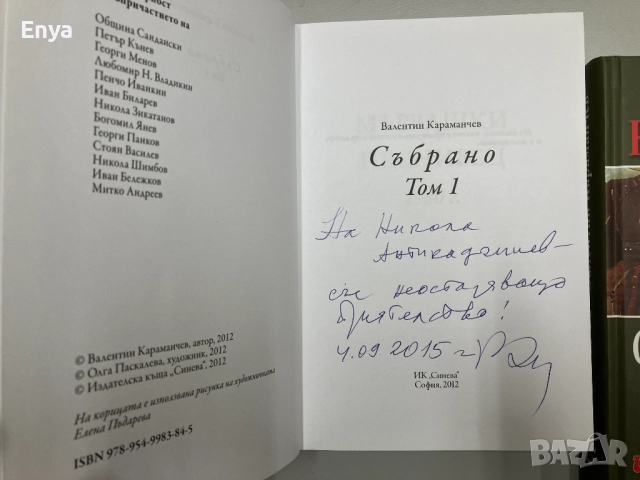 Enya
ност
съпричастието на
Община Сандански
Петър Кънев
Георги Менов
Любомир Н. Владикин
Пенчо Иванкин
Иван Биларев
Никола Зикатанов
Богомил Янев
Георги Панков
Стоян Василев
Никола Шимбов
Иван Бележков
Митко Андреев
© Валентин Караманчев, автор, 2012
© Олга Паскалева, художник, 2012
© Издателска къща „Синева“, 2012
На корицата е използвана рисунка на художничката
Елена Пъдарева
ISBN 978-954-9983-84-5
Валентин Караманчев
Събрано
Том 1
На Никола
Антикаджиев –
със неостаряващо
приятелство!
4.09 2015 г.
ИК „Синева“
София, 2012
bazar.bg